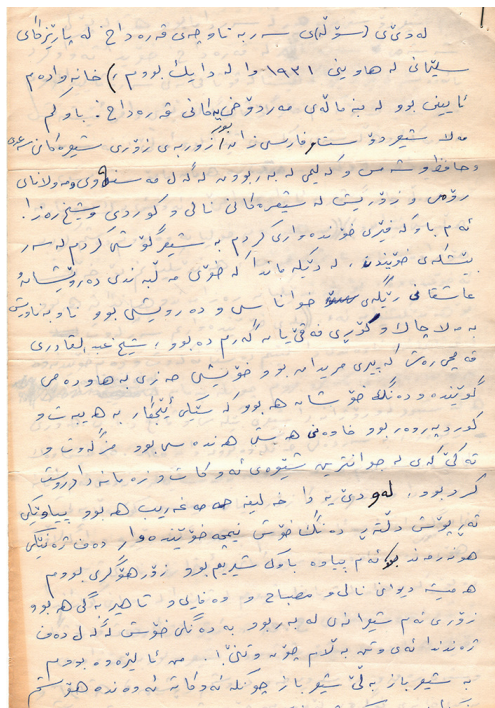 لە دێی (سۆڵە)ی سەر بە ناوچەی قەرەداخ لە پارێزگای
سلێمانی لە هاوینی ١٩٣١ وا لە دایك بووم ،) خانەوادەم
ئایینی بوو لە بنەماڵەی مەردۆخیەکانی قەرەداخ . باوکم
مەلا شیعر دۆست و فارسی زان بوو زۆربەی زۆری شیعرەکانی
و حافظ و شەمس و کەلیمی لە بەر بوون لەگەڵ مەسنەوی و مەولانای
رۆمی و زۆریش لە شیعرەکانی نالی و کوردی و شێخ رەزا .
ئەم باوکە فێری خوێندەواری کردم بە شیعر گۆشی کردم لە سەر
خوێندن . لە دێکەماندا کە خۆی مەڵبەندی دەروێشانە
عاشقانی رێگەی خواناسی و دەروێشی بوو ناو بە ناویش
بە مەلا چاك و کۆڕی فەقێیانە گەرم دەبوو ، شیخ عبدالقادری
کە پیری مریدانە بوو خۆیشی حەزی بە هاودەمی
گۆیندە و دەنگ خۆشانە هەبوو کە بە هەیبەت و
کوردپەروەر بوو خاوەنی هەستی بوو مزگەوت و
تەکیەکەی لە جوانترین شێوەی ئەو کات و زەمانەدا دروست
کرد بوو . لەو دێیەدا خەلیفە غەریب هەبوو پیاوێکی
تەڕپۆش دڵتەڕ دەنگ خۆش نیمچە خوێندەوار دەف ژەنێکی
هونەرمەند بوو ئەم پیاوە باوکی شیریم بوو زۆر هۆگری بووم
هەمیشە دیوانی نالی و مصباح و وەفایی و تاهیر بەگی هەبوو
زۆری ئەم شیعرانەی لە بەر بوو بە دەنگی خۆش لەگەڵ دەف
ژەندندا ئەی وتن بەڵام چۆن وتنێ ! . من ئالێرەوە بووم
بە شیعر باز بەڵێ شیعر باز چونکە ئەوکاتە ئەوەندە هۆشم